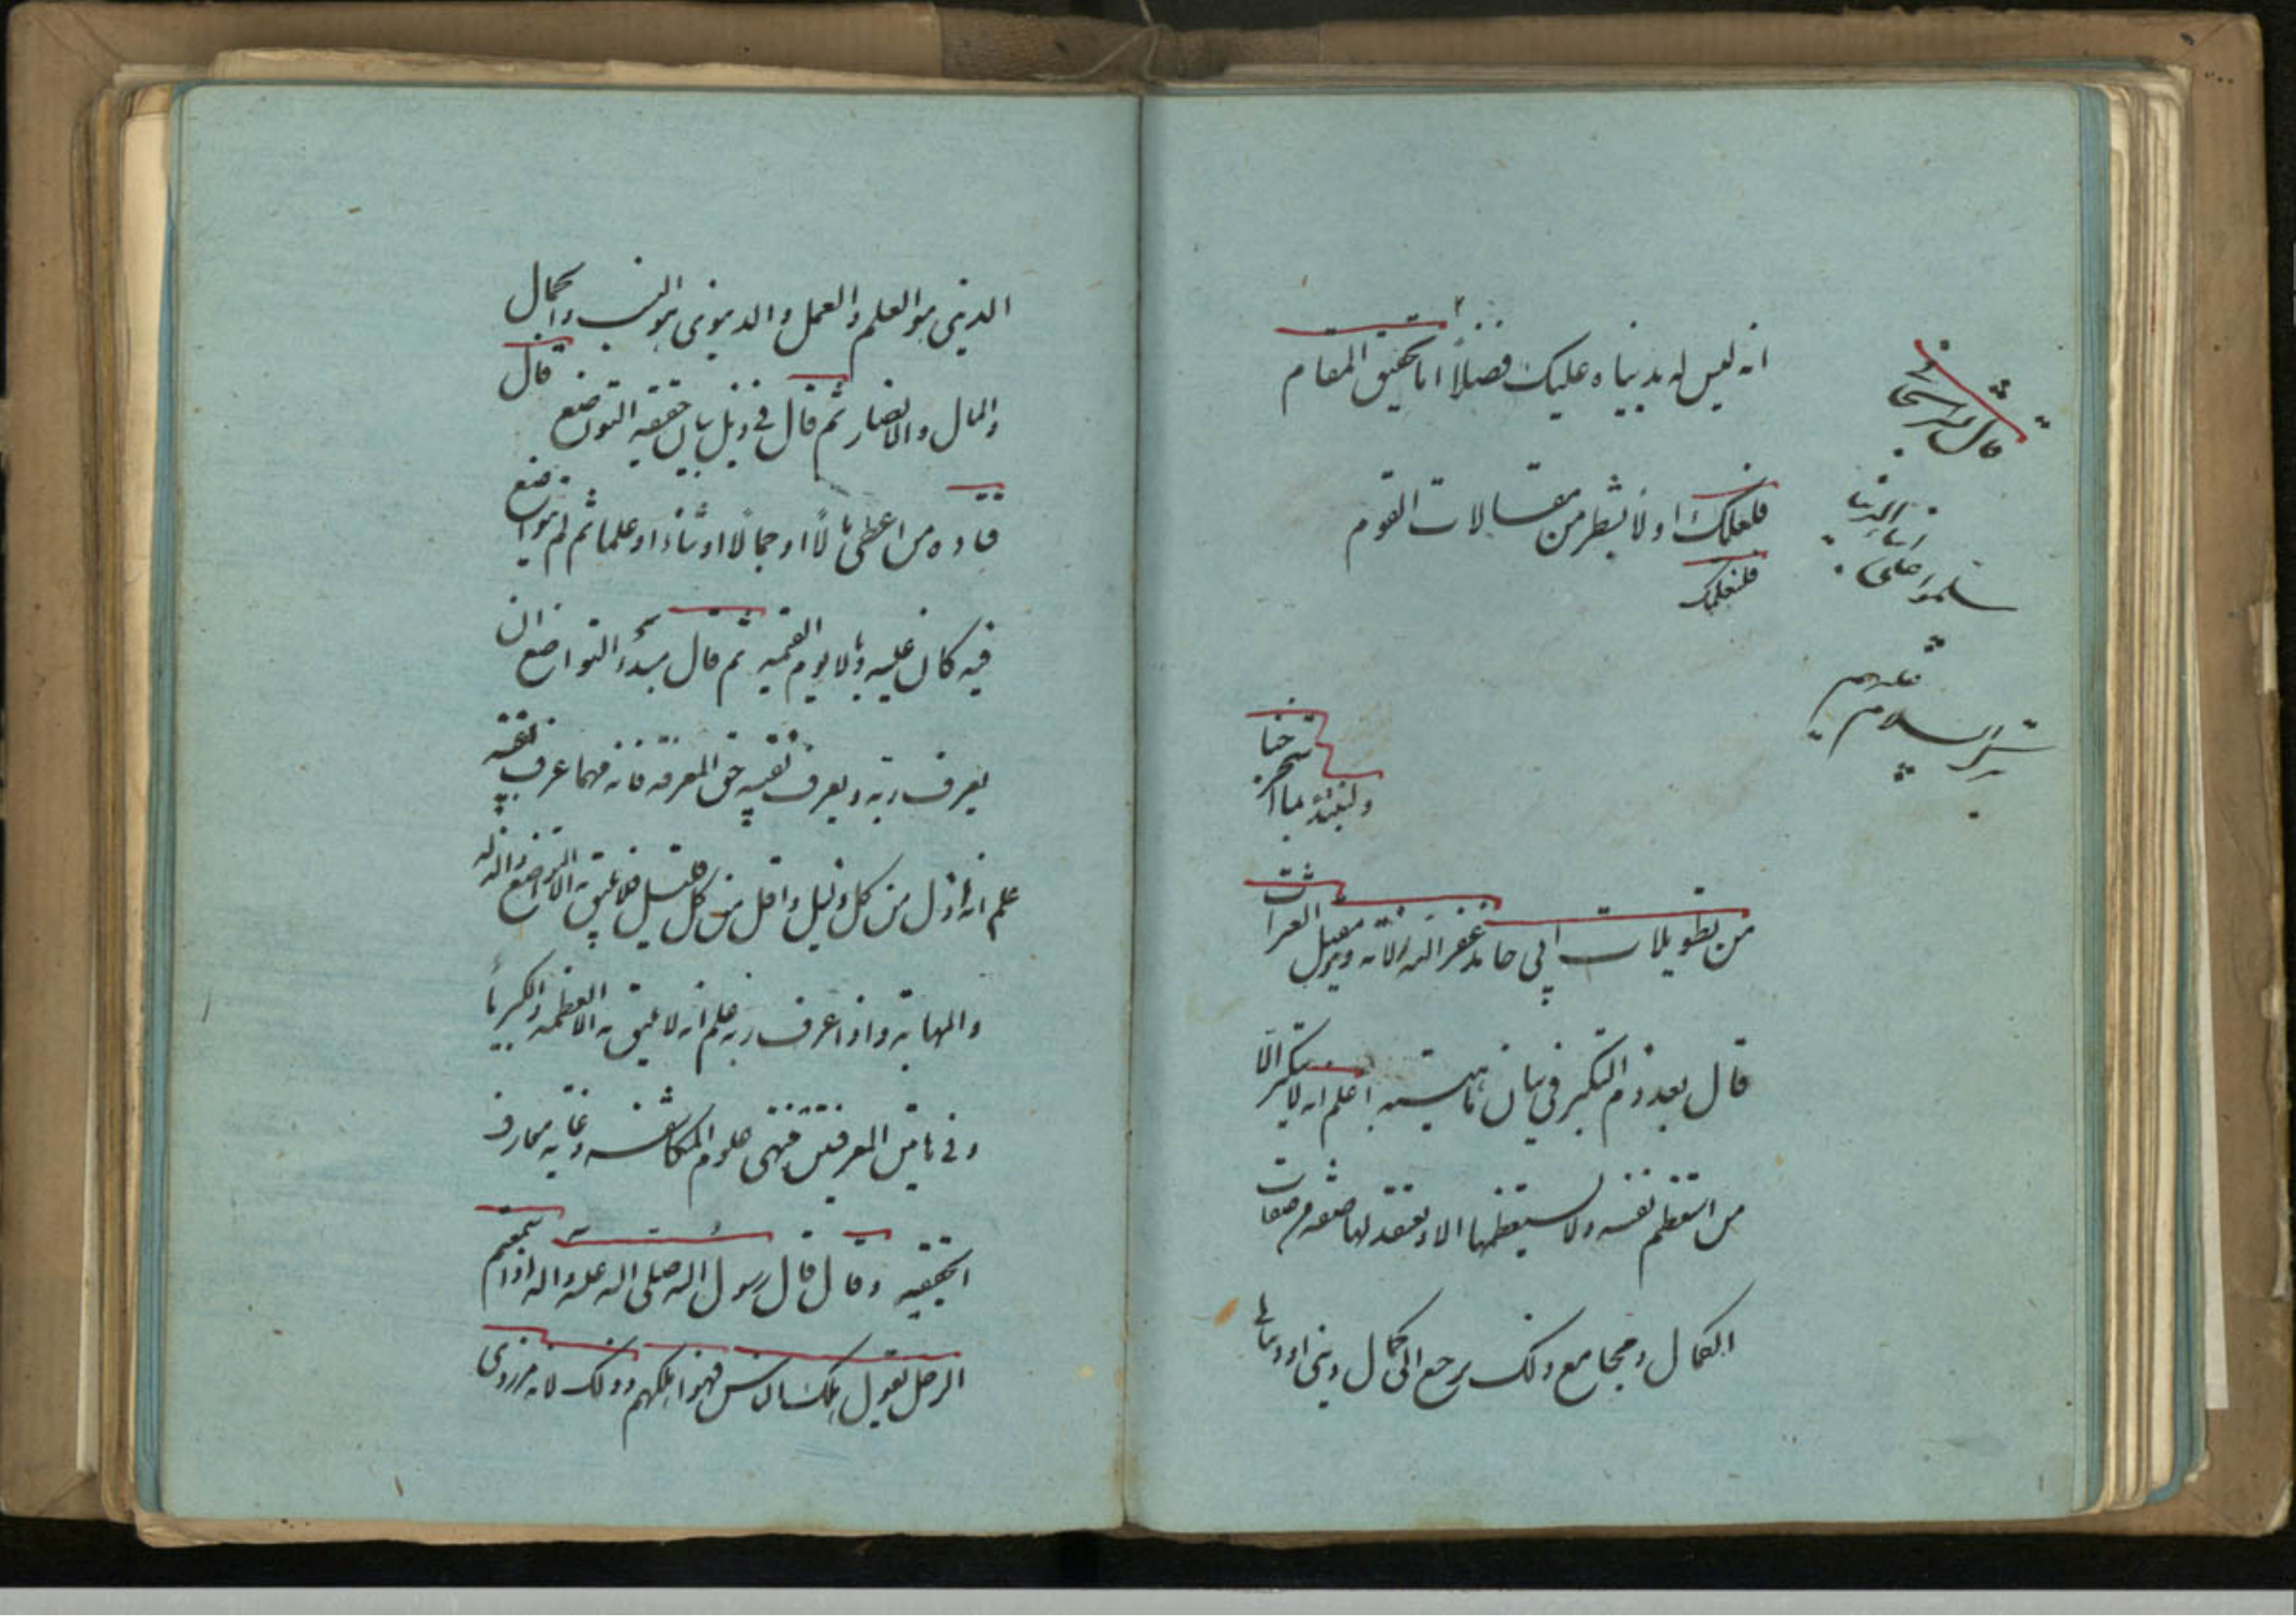 انه ليس له بدنياه عليك فضلاً اما تحقيق المقام
فلعلك اولا بشطر من مقالات القوم
فلنعلمك
ولنبتدئ بما
استخرجنا
من تطويلات ابي حامد غفر الله زلاته ويقبل العثرات
قال بعد ذم التكبر في بيان ماهيته اعلم انه لا يتكبر الا
من استعظم نفسه ولا يستعظمها الا ويعتقد لها صفة من صفات
الكمال ومجامع ذلك يرجع الى كمال ديني او
قال
ابناء الدنيا
سلموا على
الديني هو العلم والعمل والدنيوي هو النسب والجمال
والمال والانصار ثم قال في ذيل بيان حقيقه التواضع قال
قتاده من اعطى مالاً او جمالا او ثناء او علما ثم لم يتواضع
فيه كان عليه وبالا يوم القيمه ثم قال مبدء التواضع ان
يعرف ربه ويعرف نفسه حق المعرفه فانه مهما عرف نفسه
علم انه اذل من كل ذليل واقل من كل قليل فلا يليق به الا التواضع والذله
والمهابه واذا عرف ربه علم انه لا يليق به الا العظمه والكبرياء
وفي هاتين المعرفتين منتهى علوم المكاشفه وغايه معارف
الحقيقه وقال قال رسول الله صلى الله عليه واله اذا سمعتم
الرجل يقول هلك الناس فهو اهلكهم وذلك لانه مزرى